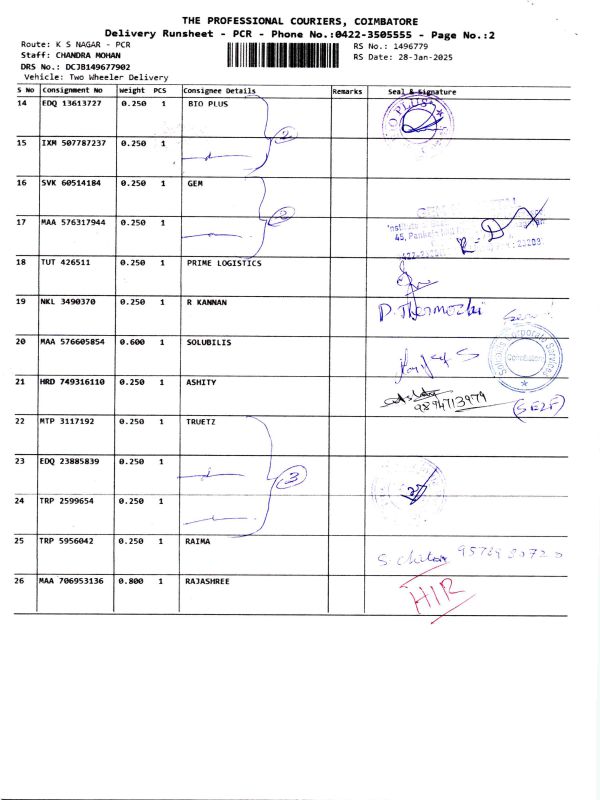 THE PROFESSIONAL COURIERS, COIMBATORE
Delivery Runsheet - PCR - Phone No.:0422-3505555 - Page No.:2
Route: K S NAGAR - PCR RS No.: 1496779
Staff: CHANDRA MOHAN RS Date: 28-Jan-2025
DRS No.: DCJB149677902
Vehicle: Two Wheeler Delivery
S No Consignment No Weight PCS Consignee Details Remarks Seal & Signature
14 EDQ 13613727 0.250 1 BIO PLUS
2
15 IXM 507787237 0.250 1
16 SVK 60514184 0.250 1 GEM
2
17 MAA 576317944 0.250 1
18 TUT 426511 0.250 1 PRIME LOGISTICS
19 NKL 3490370 0.250 1 R KANNAN
20 MAA 576605854 0.600 1 SOLUBILIS
Corporate Services
Coimbatore
21 HRD 749316110 0.250 1 ASHITY
9894713979 (SELF)
22 MTP 3117192 0.250 1 TRUETZ
23 EDQ 23885839 0.250 1
3
24 TRP 2599654 0.250 1
25 TRP 5956042 0.250 1 RAIMA
26 MAA 706953136 0.800 1 RAJASHREE
HIR